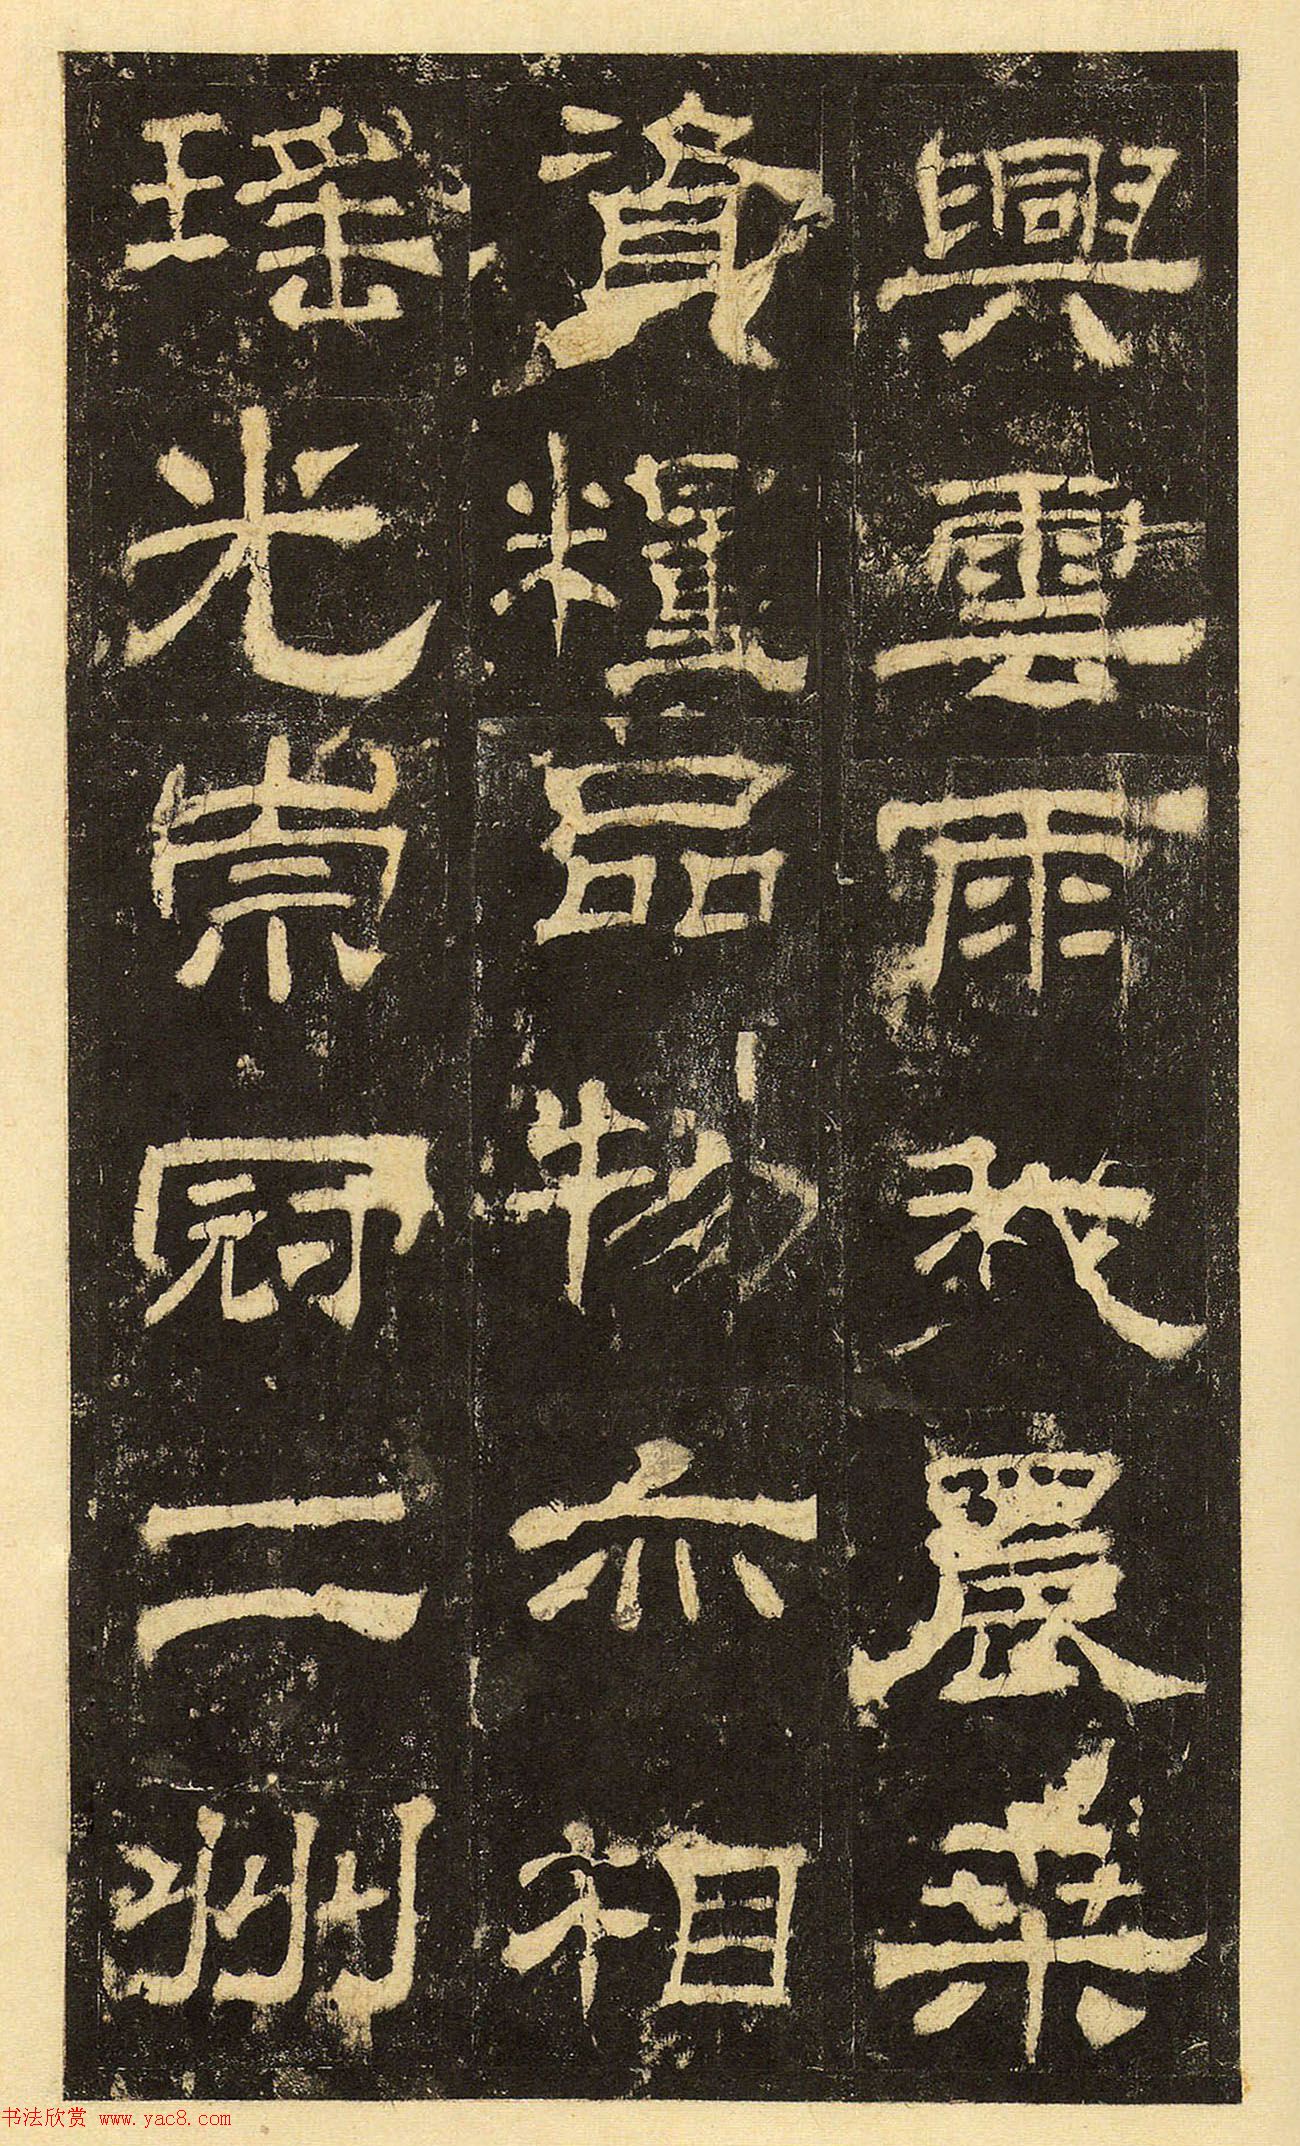 興雲雨我農桑
資糧品物亦相
瑤光崇冠二州
书法欣赏 www.yac8.com